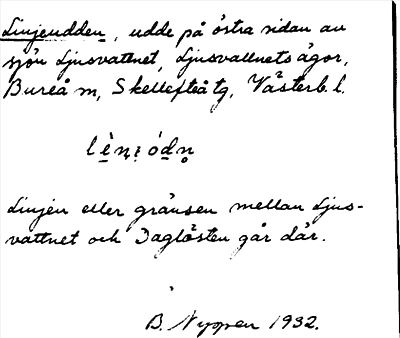 Linjeudden, udde på östra sidan av
sjön Ljusvattnet, Ljusvattnets ägor,
Bureå m, Skellefteå tg, Västerb. l.
lèṇı ódṇ
Linjen eller gränsen mellan Ljus-
vattnet och Daglösten går där.
B. Nyppen 1932.